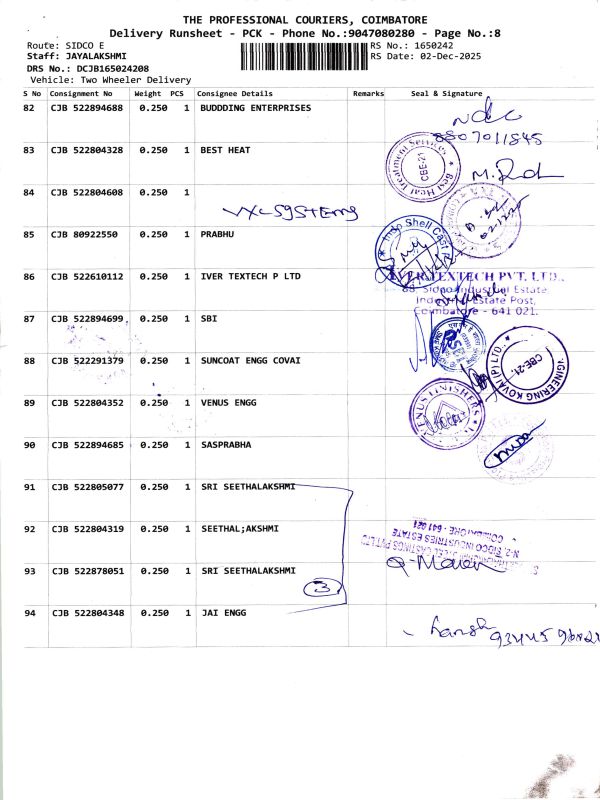 THE PROFESSIONAL COURIERS, COIMBATORE
Delivery Runsheet - PCK - Phone No.:9047080280 - Page No.:8
Route: SIDCO E
RS No.: 1650242
Staff: JAYALAKSHMI
RS Date: 02-Dec-2025
DRS No.: DCJB165024208
Vehicle: Two Wheeler Delivery
S No Consignment No Weight PCS Consignee Details Remarks Seal & Signature
82 CJB 522894688 0.250 1 BUDDDING ENTERPRISES
8807011845
83 CJB 522804328 0.250 1 BEST HEAT
Best Heat Treatment Services
CBE-21
84 CJB 522804608 0.250 1
VXL Systems
85 CJB 80922550 0.250 1 PRABHU
Indo Shell Cast
86 CJB 522610112 0.250 1 IVER TEXTECH P LTD
IVER TEXTECH PVT. LTD.,
Sidco Industrial Estate,
Estate Post,
Coimbatore - 641 021.
87 CJB 522894699 0.250 1 SBI
88 CJB 522291379 0.250 1 SUNCOAT ENGG COVAI
GINEERING KOVAI (P) LTD.
CBE-21.
89 CJB 522804352 0.250 1 VENUS ENGG
VENUS FINISHERS
90 CJB 522894685 0.250 1 SASPRABHA
91 CJB 522805077 0.250 1 SRI SEETHALAKSHMI
92 CJB 522804319 0.250 1 SEETHAL;AKSHMI
STEEL CASTINGS PVT LTD
N-2, SIDCO INDUSTRIES ESTATE
COIMBATORE - 641 021
93 CJB 522878051 0.250 1 SRI SEETHALAKSHMI
3
94 CJB 522804348 0.250 1 JAI ENGG